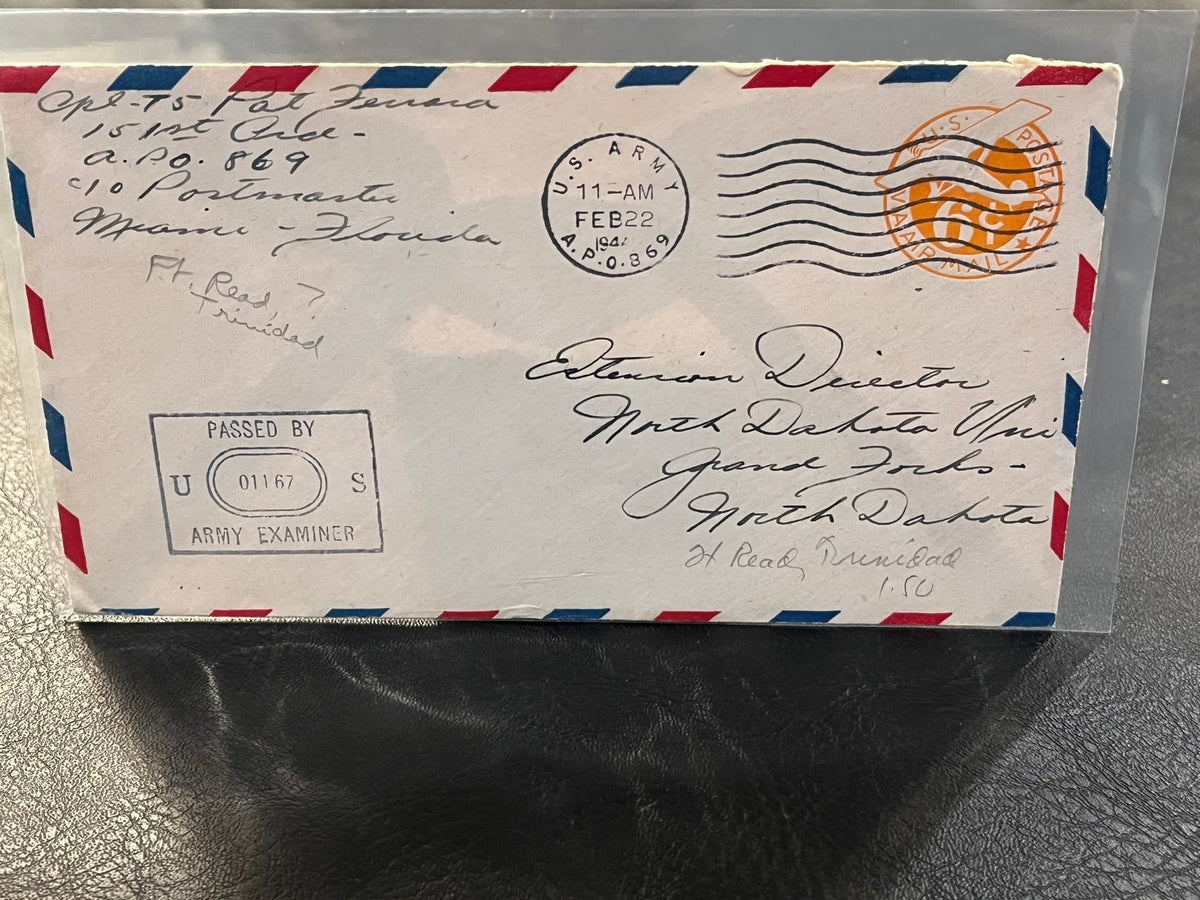 Cpl-T5 Pat Ferrara
151st Ord-
A.P.O. 869
c/o Postmaster
Miami - Florida
Ft. Read, ?
Trinidad
U.S. ARMY
11-AM
FEB 22
1944
A.P.O. 869
U.S. POSTAGE
6¢
VIA AIR MAIL
Extension Director
North Dakota Uni
Grand Forks-
North Dakota
Ft Read, Trinidad
1.50
PASSED BY
U 01167 S
ARMY EXAMINER